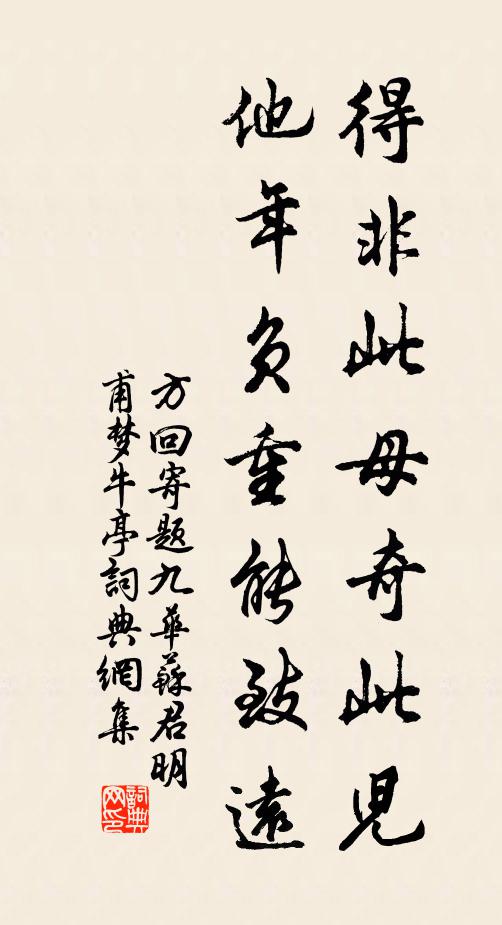 得非此母奇此児
他年负重能致遠
方回寄题九華蘇君明
甫梦牛亭詞典網集
詞典网印